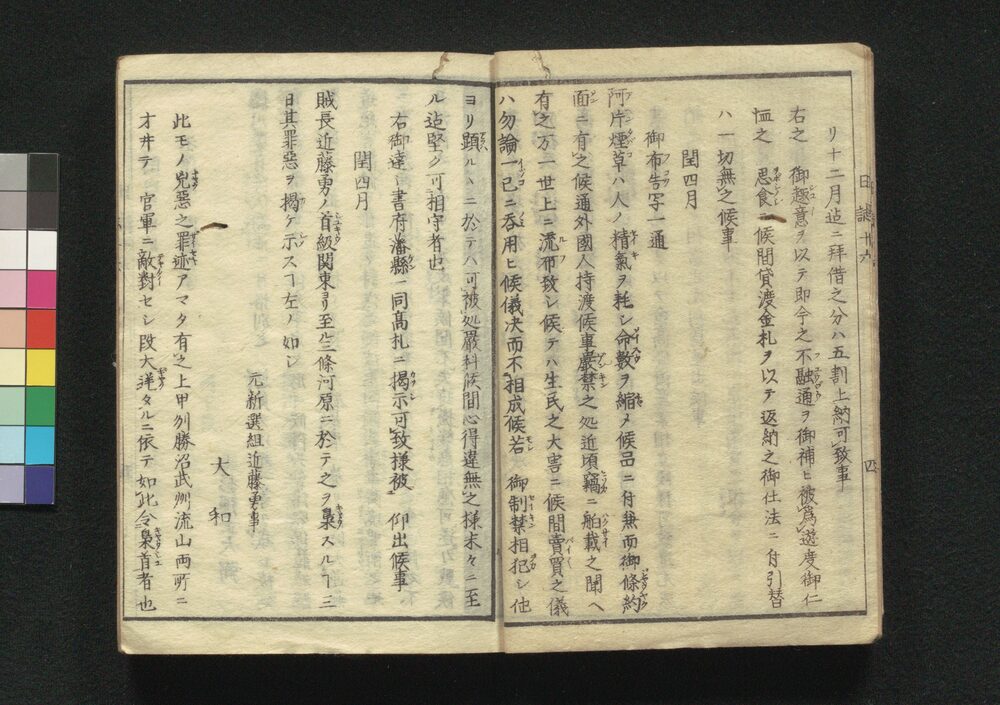 リ十二月迄ニ拜借之分ハ五割上納可致事
右之 御趣意ヲ以テ即今之不融通ヲ御補ヒ被爲遊度御仁
恤之 思食ニ候間貸渡金札ヲ以テ返納之御仕法ニ付引替
ハ一切無之候事
閏四月
御布告写一通
阿片煙草ハ人ノ精氣ヲ耗シ命數ヲ縮メ候品ニ付兼而御條約
面ニ有之候通外國人持渡候事嚴禁之処近頃竊ニ舶載之聞ヘ
有之万一世上ニ流布致シ候テハ生民之大害ニ候間賣買之儀
ハ勿論一己ニ呑用ヒ候儀決而不相成候若 御制禁相犯シ他
ヨリ顕ルヽニ於テハ可被処嚴科候間心得違無之様末々ニ至
ル迄堅ク可相守者也
右御達シ書府藩縣一同高札ニ揭示可致様被 仰出候事
閏四月
賊長近藤勇ノ首級関東ヨリ至ル三條河原ニ於テ之ヲ梟スルヿ三
日其罪惡ヲ揭ケ示スヿ左ノ如シ
元新選組近藤勇事
大和
此モノ兇惡之罪迹アマタ有之上甲州勝沼武州流山両所ニ
オヰテ 官軍ニ敵對セシ段大逆タルニ依テ如此令梟首者也
日誌十六
四